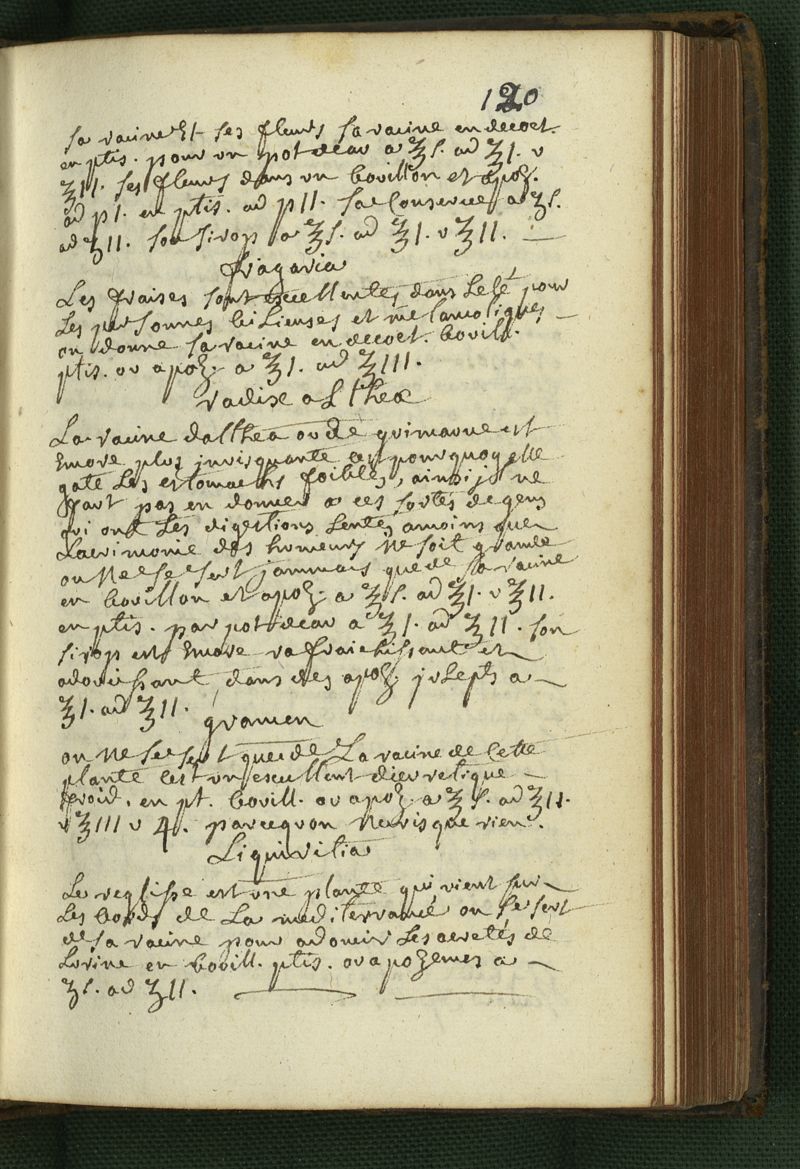 120
sa racine Et ses fleurs sa racine en decoct.
en ptis. pour un pot deau a ℥ s. ad ℥ I. v
℥ II. ses fleurs dans un bouillon et apoz.
ad p I. en ptis. ad p II. sa Conserve a ʒ s.
ad ʒ II. son sirop a ℥ s. ad ℥ I. v ℥ II. —
fragaria
Les fraises sont excellentes dans Leté pour
Les personnes bilieuses et melancoliques —
on donne sa racine en decoct. bouill.
ptis. ou apoz. a ℥ I. ad ℥ III.
radix altheæ
La racine dalthea ou de guimauve est
Encore plus invisquante cest pourquoy elle
gate Les estomachs foibles, ainsi il ne
faut pas en donner a ces sortes de gens
qui ont Les digestions Lentes amoins que
Lacrimonie des humeurs Ne soit grande
on Ne se sert jammais que de sa racine
en bouillon et apoz. a ℥ s. ad ℥ I. v ℥ II.
en ptis. par pot deau a ℥ I. ad ℥ II. son
sirop est Encore rafraichissant et
adoucissant, dans des apoz. juleps a —
℥ I. ad ℥ II.
gramen
on Ne se sert que de La racine de Cette
plante Cest un excellent dieuretique —
froid. en pt. bouill. ou apoz. a ℥ s. ad ℥ II.
v ℥ III v 4. parcequon Ne risque rien.
Liquiritia
Le reglisse est une plante qui vient sur
Les bords de La mediterranée on se sert
de sa racine pour adoucir Les acretés de
Lurine en bouill. ptis. ou apozemes a —
ʒ s. ad ʒ II. — —